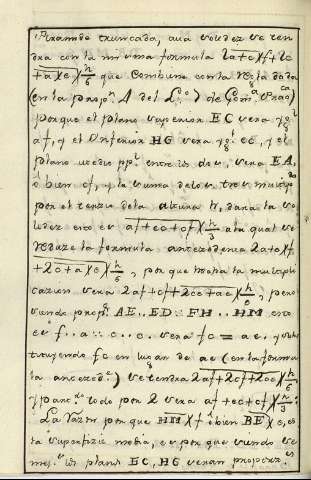 Piramide truncada, cuia solidez se ten
dra con la misma formula 2a+c×f+2c
+a×e×h/6 que combiene con la Regla dada
(en la propon. A del L.o ) de Geom.a Prac.ca)
porque el plano superior EC sera yg.l
af, y el Ynferior HG sera yg.l ec, y el
plano medio pp.l entre los dos, sera EA,
ò bien cf, y la suma de los tres multip.do
por el tercio de la altura h, dara la so
lidez esto es af+ec+cf×h/3 a la qual se
Reduze la formula antezedente 2a+c×f
+2c+a×e×h/6, porque hecha la multipli
cazion sera 2af+cf+2ce+ae×h/6, pero
siendo prop.s AE..ED::FH..HM esto
es f..a::e..c. sera fc=ae, y subs
tituyendo fc en lugar de ae (en la formu
la antezed.e) se tendra 2af+2cf+2ce×h/6
y par.do todo por 2 sera af+ec+cf×h/3.
La Razon porque HM×f ò bien BE×e, es
la superfizie media, es porque siendo se
mej.s los planos EC, HG seran proporz.s